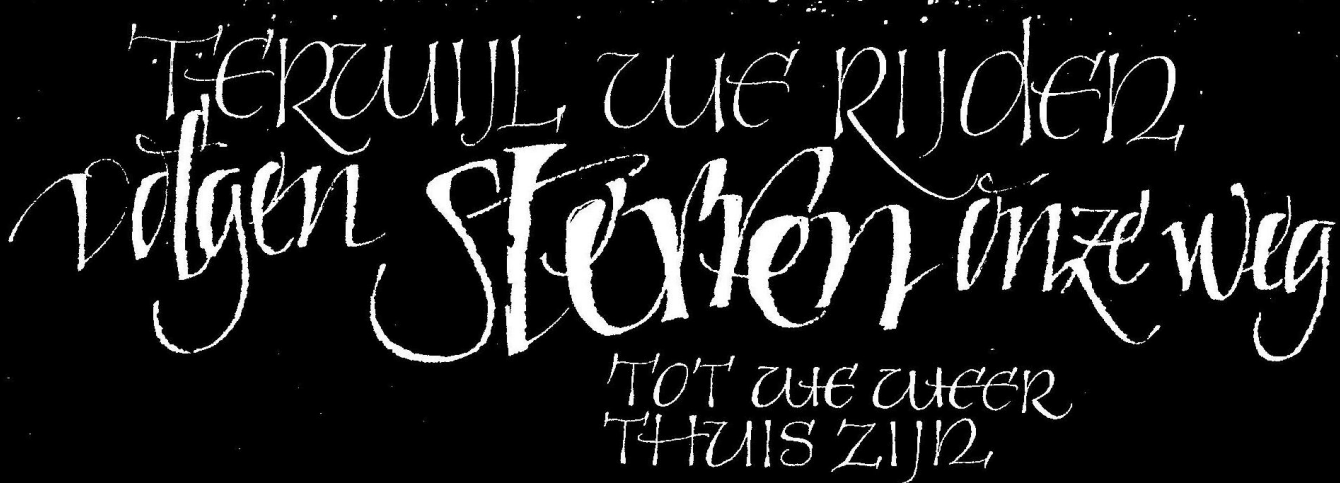 TERWIJL WE RIJDEN
volgen sterren onze weg
TOT WE WEER
THUIS ZIJN